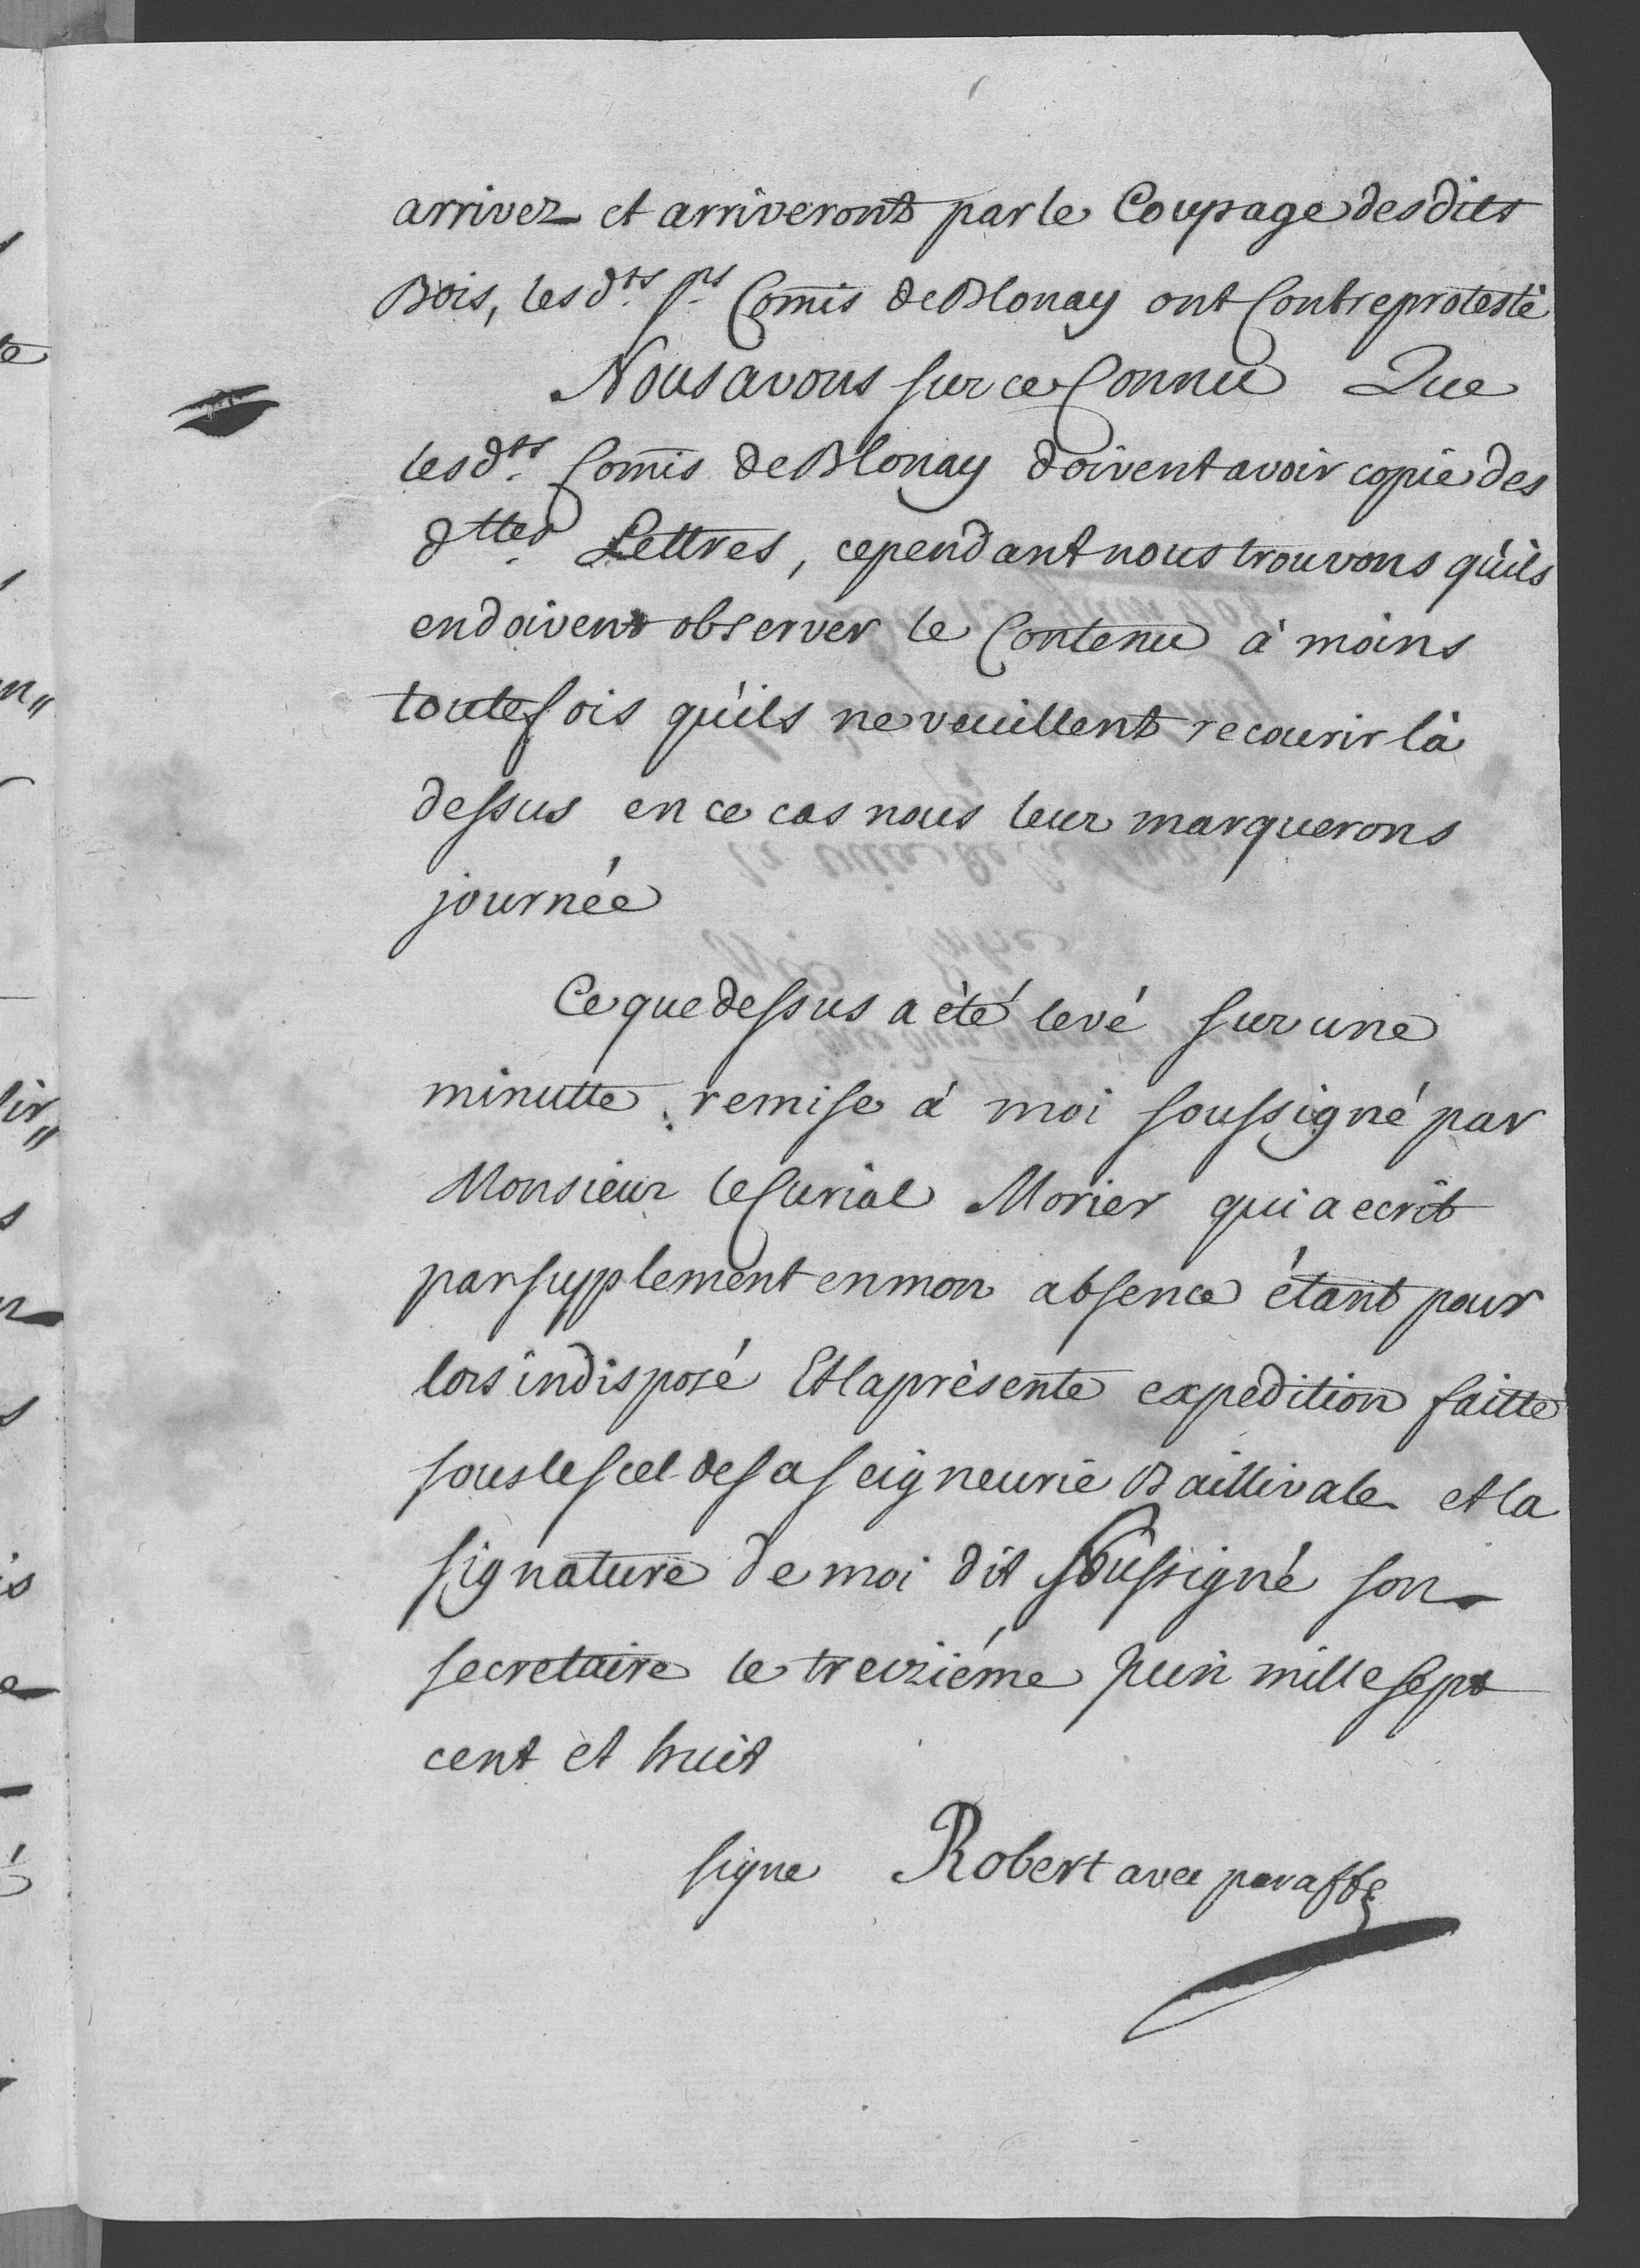 arrivez et arriveront par le Coupage desdits
Bois, les dts srs Comis de Blonay ont Contreprotesté
Nous avons sur ce Connu Que
les dts Comis de Blonay doivent avoir copie des
dttes Lettres, cependant nous trouvons qu'ils
en doivent observer le Contenu à moins
toutefois qu'ils ne veuillent recourir là
dessus en ce cas nous leur marquerons
journée
Ce que dessus a été levé sur une
minutte remise à moi soussigné par
Monsieur le Curial Morier qui a ecrit
par supplement en mon absence étant pour
lors indisposé Et la présente expedition faitte
sous le scel de sa seigneurie Baillivale et la
signature de moi dit Soussigné son
secretaire le treiziéme Juin mille sept
cent et huit
signe Robert avec paraffe